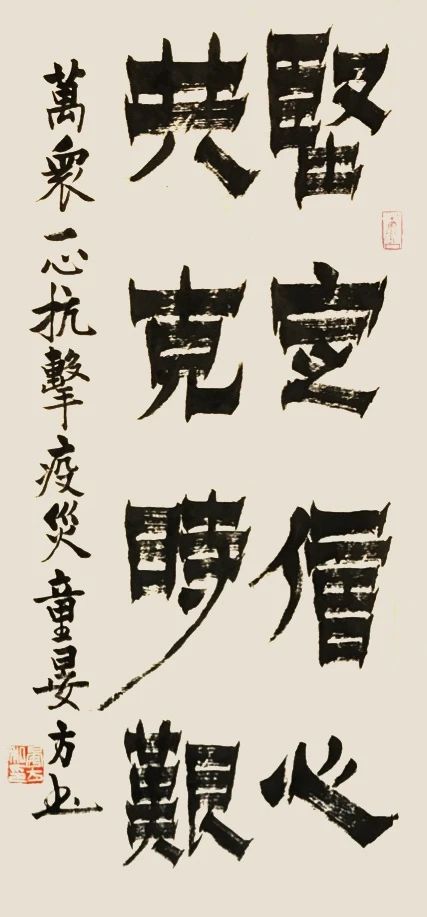 堅定信心
共克時艱
萬衆一心抗擊疫災童晏方书